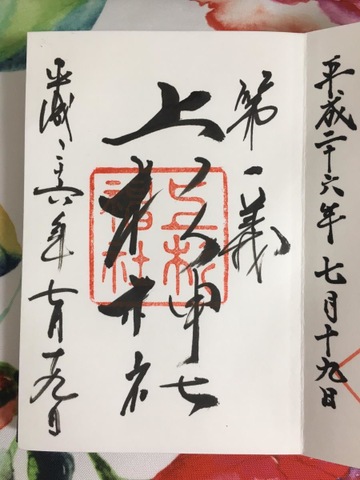 平成二十六年七月十九日
第一義
上杉神社
上杉
神社
平成二十六年七月十九日